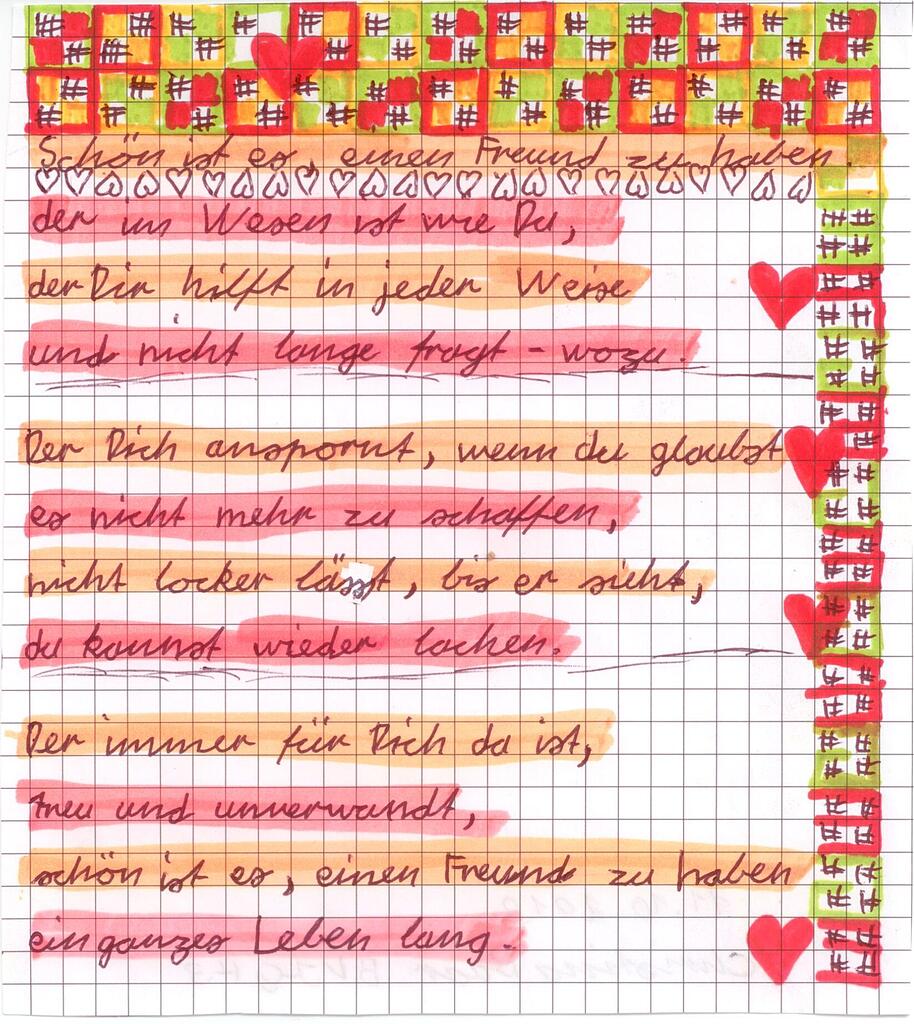 Schön ist es, einen Freund zu haben.
der im Wesen ist wie Du,
der Dir hilft in jeder Weise
und nicht lange fragt - wozu.
Der Dich anspornt, wenn du glaubst
es nicht mehr zu schaffen,
nicht locker lässt, bis er sieht,
du kannst wieder lachen.
Der immer für Dich da ist,
treu und unverwandt,
schön ist es, einen Freund zu haben
ein ganzes Leben lang.